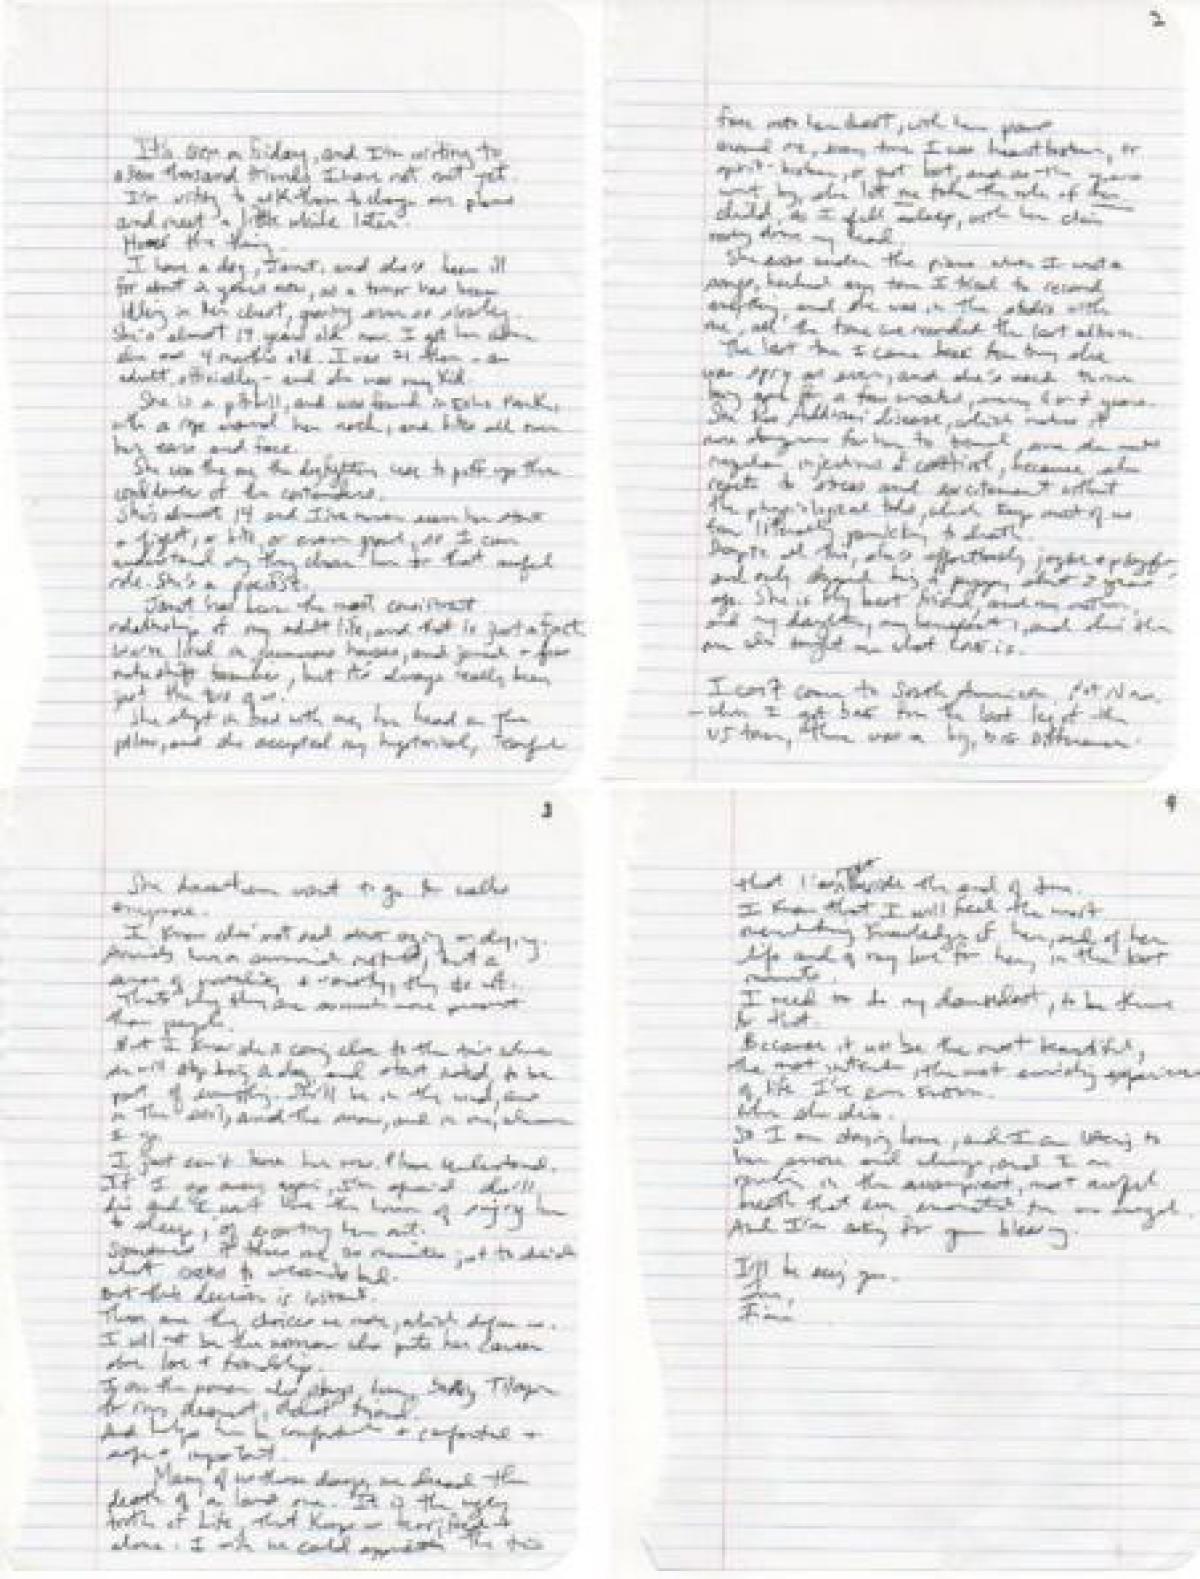 It's 6pm on Friday, and I'm writing to
a few thousand friends I have not met yet.
I'm writing to ask them to change our plans
and meet a little while later.
Here's the thing.
I have a dog, Janet, and she's been ill
for about 2 years now, as a tumor has been
idling in her chest, growing ever so slowly.
She's almost 14 years old now. I got her when
she was 4 months old. I was 21 then - an
adult, officially - and she was my kid.
She is a pitbull, and was found in Echo Park,
with a rope around her neck, and bites all over
her ears and face.
She was the one the dogfighters use to puff up the
confidence of the contenders.
She's almost 14 and I've never seen her start
a fight, or bite, or even growl, so I can
understand why they chose her for that awful
role. She's a pacifist.
Janet has been the most consistent
relationship of my adult life, and that is just a fact
We've lived in numerous houses, and joined a few
makeshift families, but it's always really been
just the two of us.
She slept in bed with me, her head on the
pillow, and she accepted my hysterical, tearful
2
face into her chest, with her paws
around me, every time I was heartbroken, or
spirit-broken, or just lost, and as the years
went by, she let me take the role of her
child, as I fell asleep, with her chin
resting above my head.
She was under the piano when I wrote
songs, barked any time I tried to record
anything, and she was in the studio with
me, all the time we recorded the last album.
The last time I came back from tour, she
was spry as ever, and she's used to me
being gone for a few weeks, every 6 or 7 years.
She has Addison's disease, which makes it
more dangerous for her to travel, since she needs
regular injections of cortisol, because she
reacts to stress and excitement without
the physiological tools which keep most of us
from literally panicking to death.
Despite all this, she's effortlessly joyful & playful
and only stopped being a puppy about 3 years
ago. She is my best friend, and my mother,
and my daughter, my benefactor, and she's the
one who taught me what love is.
I can't come to South America. Not now.
- when I got back from the last leg of the
US tour, there was a big, big difference.
3
She doesn't even want to go for walks
anymore.
I know she's not sad about aging or dying.
Animals have a survival instinct, but a
sense of mortality & vanity, they do not.
That's why they are so much more present
than people.
But I know she is coming close to the time where
she will stop being a dog, and start instead to be
part of everything. She'll be in the wind, and
in the soil, and the snow, and in me, wherever
I go.
I just can't leave her now. Please understand.
If I go away again, I'm afraid she'll
die and I won't have the honor of singing her
to sleep, of escorting her out.
Sometimes it takes me 20 minutes just to decide
what socks to wear to bed.
But this decision is instant.
These are the choices we make, which define us.
I will not be the woman who puts her career
above love & friendship.
I am the woman who stays home, baking Tilapia
for my dearest, oldest friend.
And helps her be comfortable & comforted &
safe & important.
Many of us these days, we dread the
death of a loved one. It is the ugly
truth of Life, that keeps us terrified &
alone. I wish we could appreciate the time
4
that lies right beside the end of time.
I know that I will feel the most
overwhelming knowledge of her, and of her
life and of my love for her, in the last
moments.
I need to do my damnedest, to be there
for that.
Because it will be the most beautiful,
the most intense, the most enriching experience
of life I've ever known.
When she dies.
So I am staying home, and I am listening to
her snore and wheeze, and I am
revelling in the swampiest, most awful
breath that ever emanated from an angel.
And I'm asking for your blessing.
I'll be seeing you.
Love,
Fiona